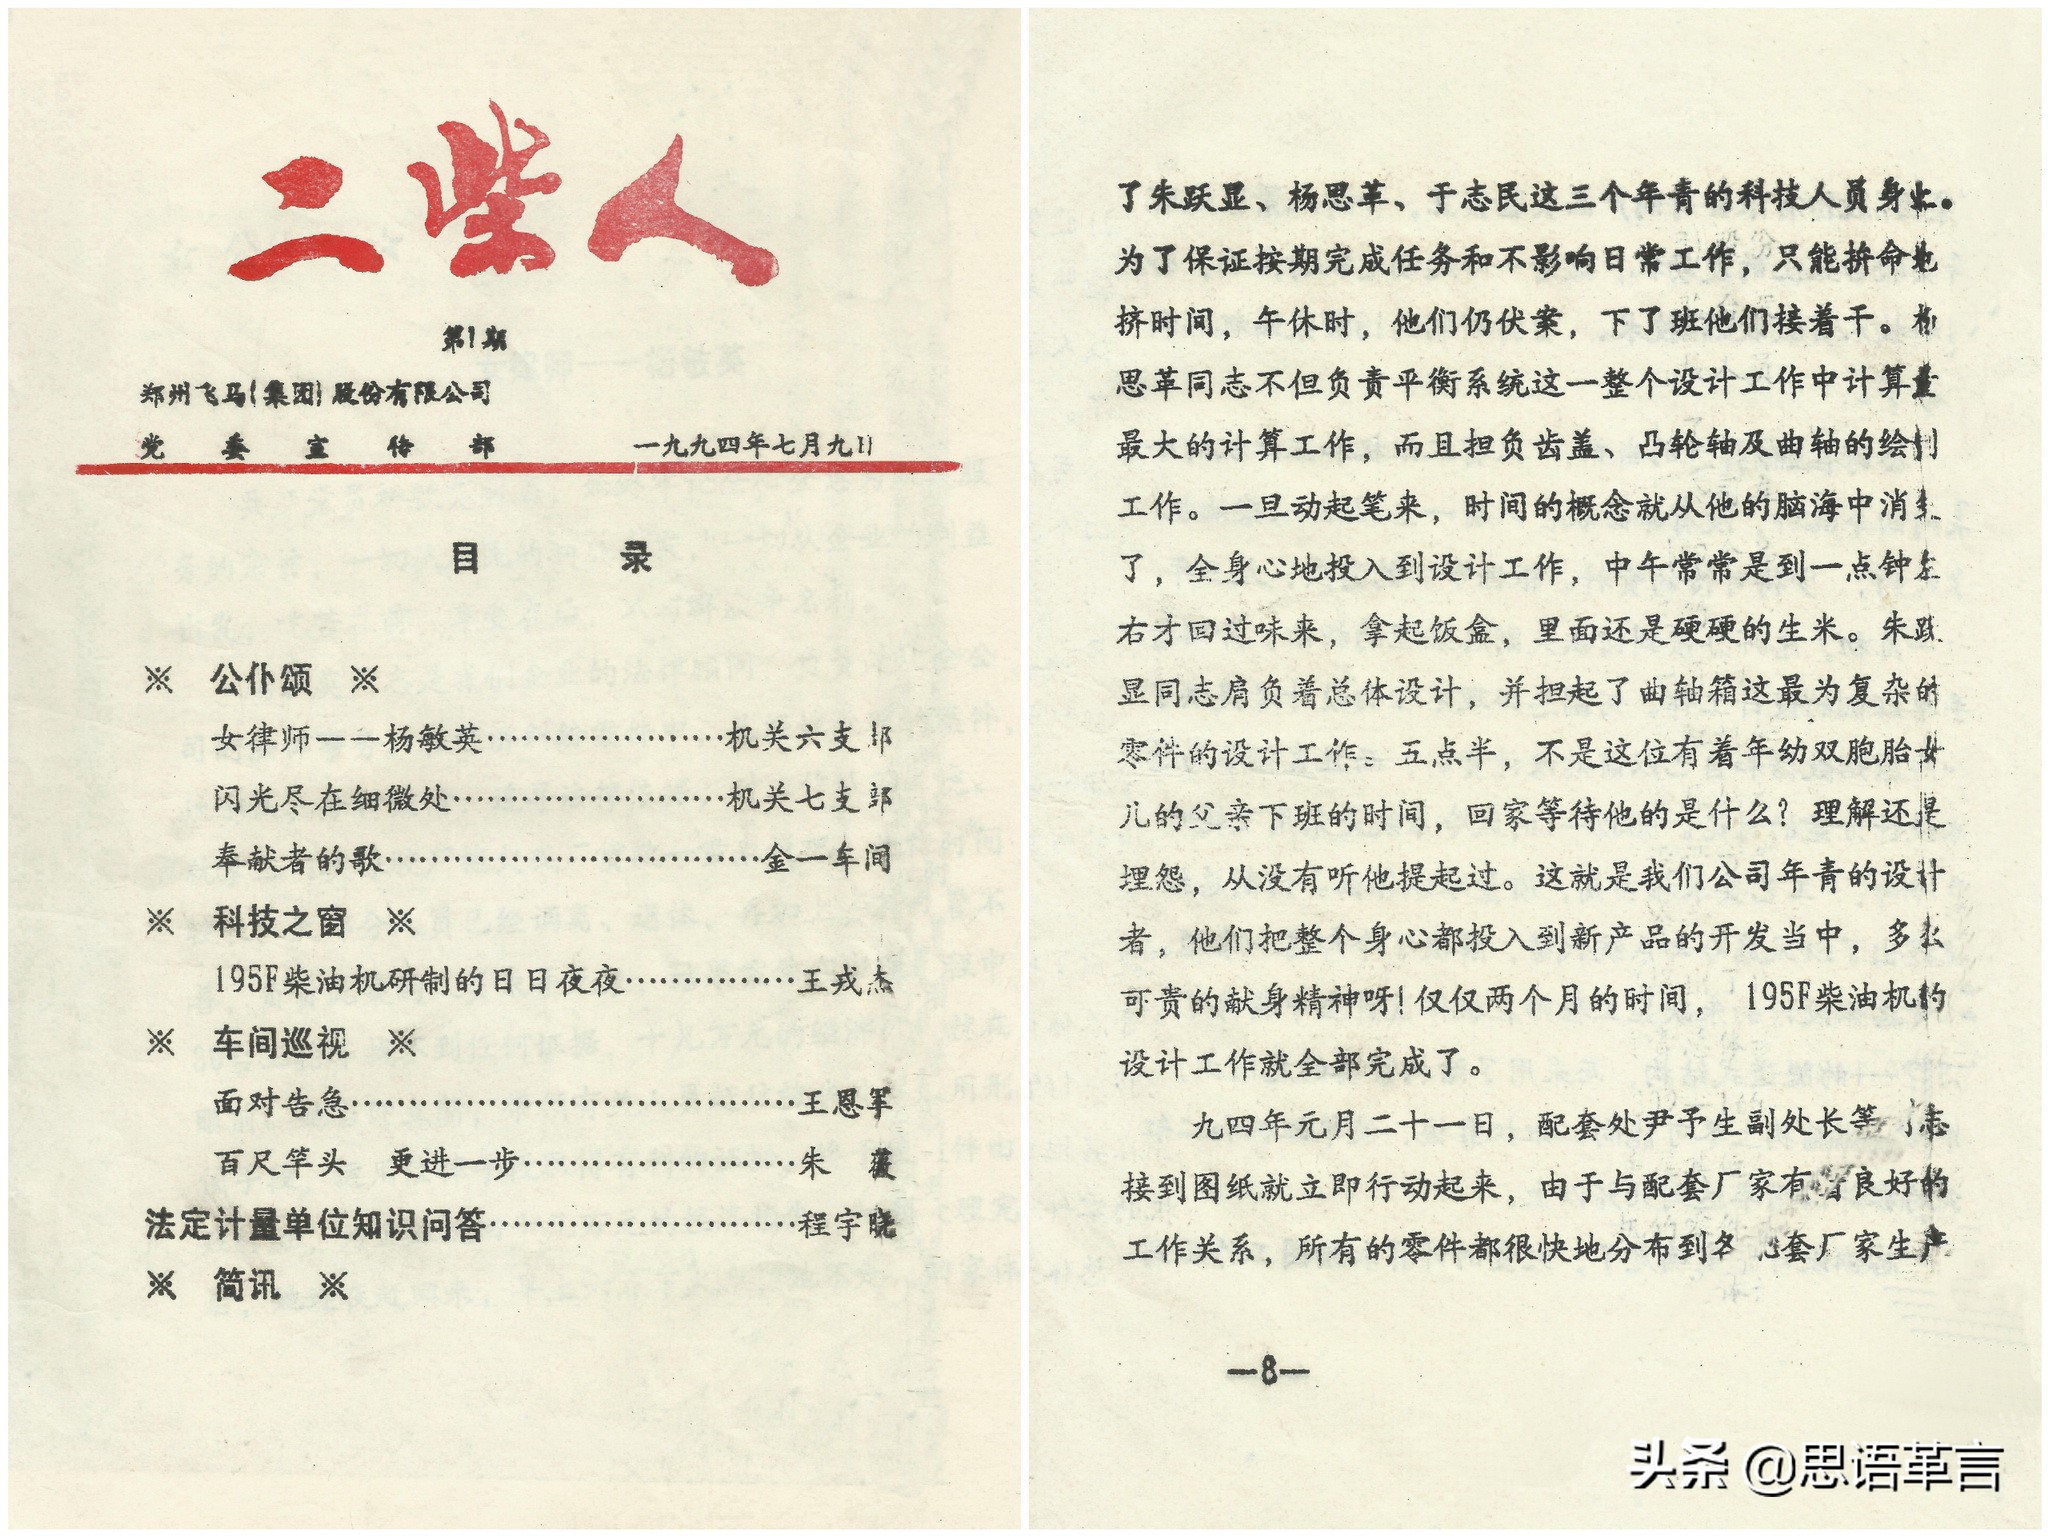 二柴人
第1期
郑州飞马(集团)股份有限公司
党委宣传部 一九九四年七月九日
目 录
※ 公仆颂 ※
女律师——杨敏英…………………机关六支部
闪光尽在细微处………………………机关七支部
奉献者的歌………………………………金一车间
※ 科技之窗 ※
195F柴油机研制的日日夜夜……………王戎杰
※ 车间巡视 ※
面对告急……………………………………王恩军
百尺竿头 更进一步………………………朱 薇
法定计量单位知识问答…………………………程宇晓
※ 简讯 ※
了朱跃显、杨思革、于志民这三个年青的科技人员身上。
为了保证按期完成任务和不影响日常工作，只能拚命地
挤时间，午休时，他们仍伏案，下了班他们接着干。杨
思革同志不但负责平衡系统这一整个设计工作中计算量
最大的计算工作，而且担负齿盖、凸轮轴及曲轴的绘制
工作。一旦动起笔来，时间的概念就从他的脑海中消失
了，全身心地投入到设计工作，中午常常是到一点钟左
右才回过味来，拿起饭盒，里面还是硬硬的生米。朱跃
显同志肩负着总体设计，并担起了曲轴箱这最为复杂的
零件的设计工作。五点半，不是这位有着年幼双胞胎女
儿的父亲下班的时间，回家等待他的是什么？理解还是
埋怨，从没有听他提起过。这就是我们公司年青的设计
者，他们把整个身心都投入到新产品的开发当中，多么
可贵的献身精神呀！仅仅两个月的时间， 195F柴油机的
设计工作就全部完成了。
九四年元月二十一日，配套处尹予生副处长等同志
接到图纸就立即行动起来，由于与配套厂家有着良好的
工作关系，所有的零件都很快地分布到各配套厂家生产
—8—
头条 @思语革言